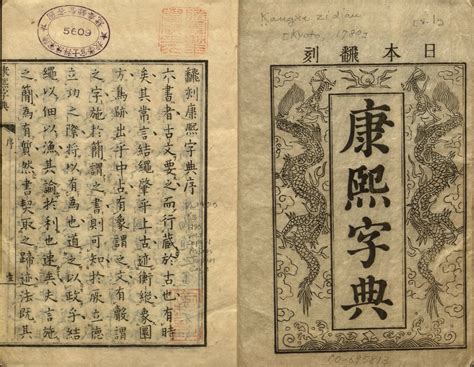 日本飜刻
康熙字典
Kangxi zidian
飜刻康熙字典序
六書者古文要之而行藏於古也有時
矣其常言結繩肇乎上古迹衡縱象圖
方鳥跡出乎中古有象謂之文有
之字施於簡謂之書則可知於厥立德
立功之際將以有為也道之以政乎結
繩以佃以漁其諭於利也速矣史言施
之簡為有然書契取之迹法既其
康熙字典
序
5609